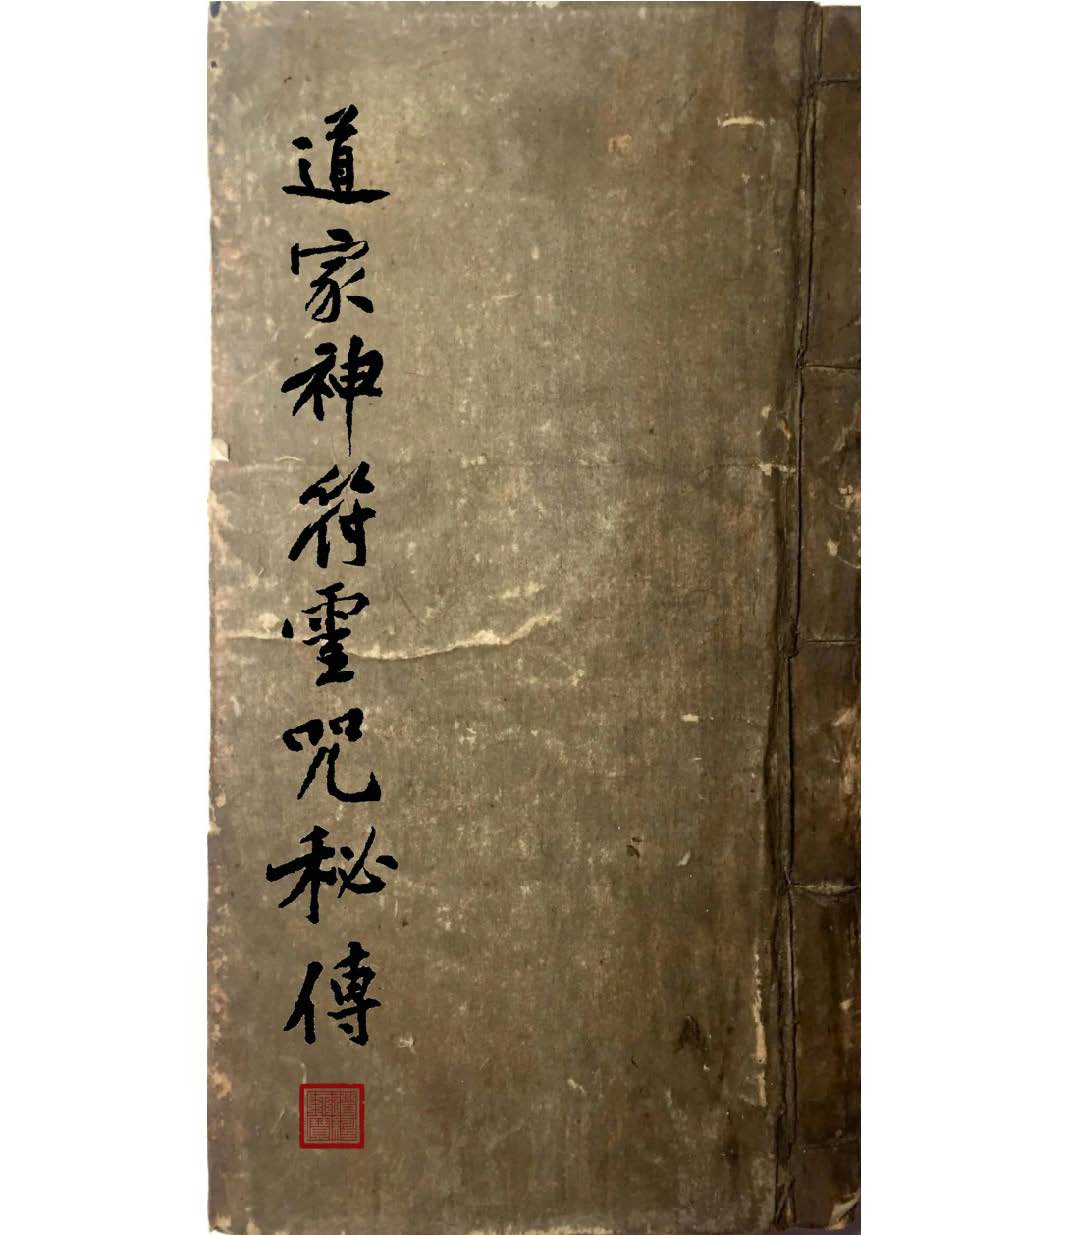 道家神符霊咒秘傳